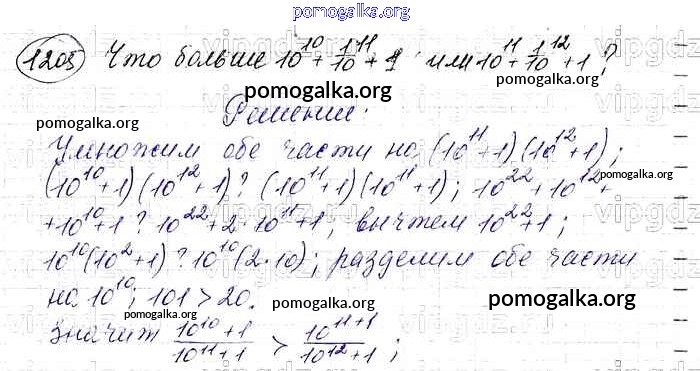 pomogalka.org
1205 Что больше 10^10 + 1/10^11 + 1 или 10^11 + 1/10^12 + 1 ?
pomogalka.org
pomogalka.org Решение: pomogalka.org
Умножим обе части на (10^11+1)(10^12+1);
(10^10+1)(10^12+1) ? (10^11+1)(10^11+1); 10^22+10^12+
pomogalka.org
+10^10+1 ? 10^22+2·10^11+1; вычтем 10^22+1;
10^10(10^2+1) ? 10^10(2·10); разделим обе части
на 10^10; 101 > 20.
pomogalka.org pomogalka.org
pomogalka.org
Значит (10^10+1)/(10^11+1) > (10^11+1)/(10^12+1);
pomogalka.org